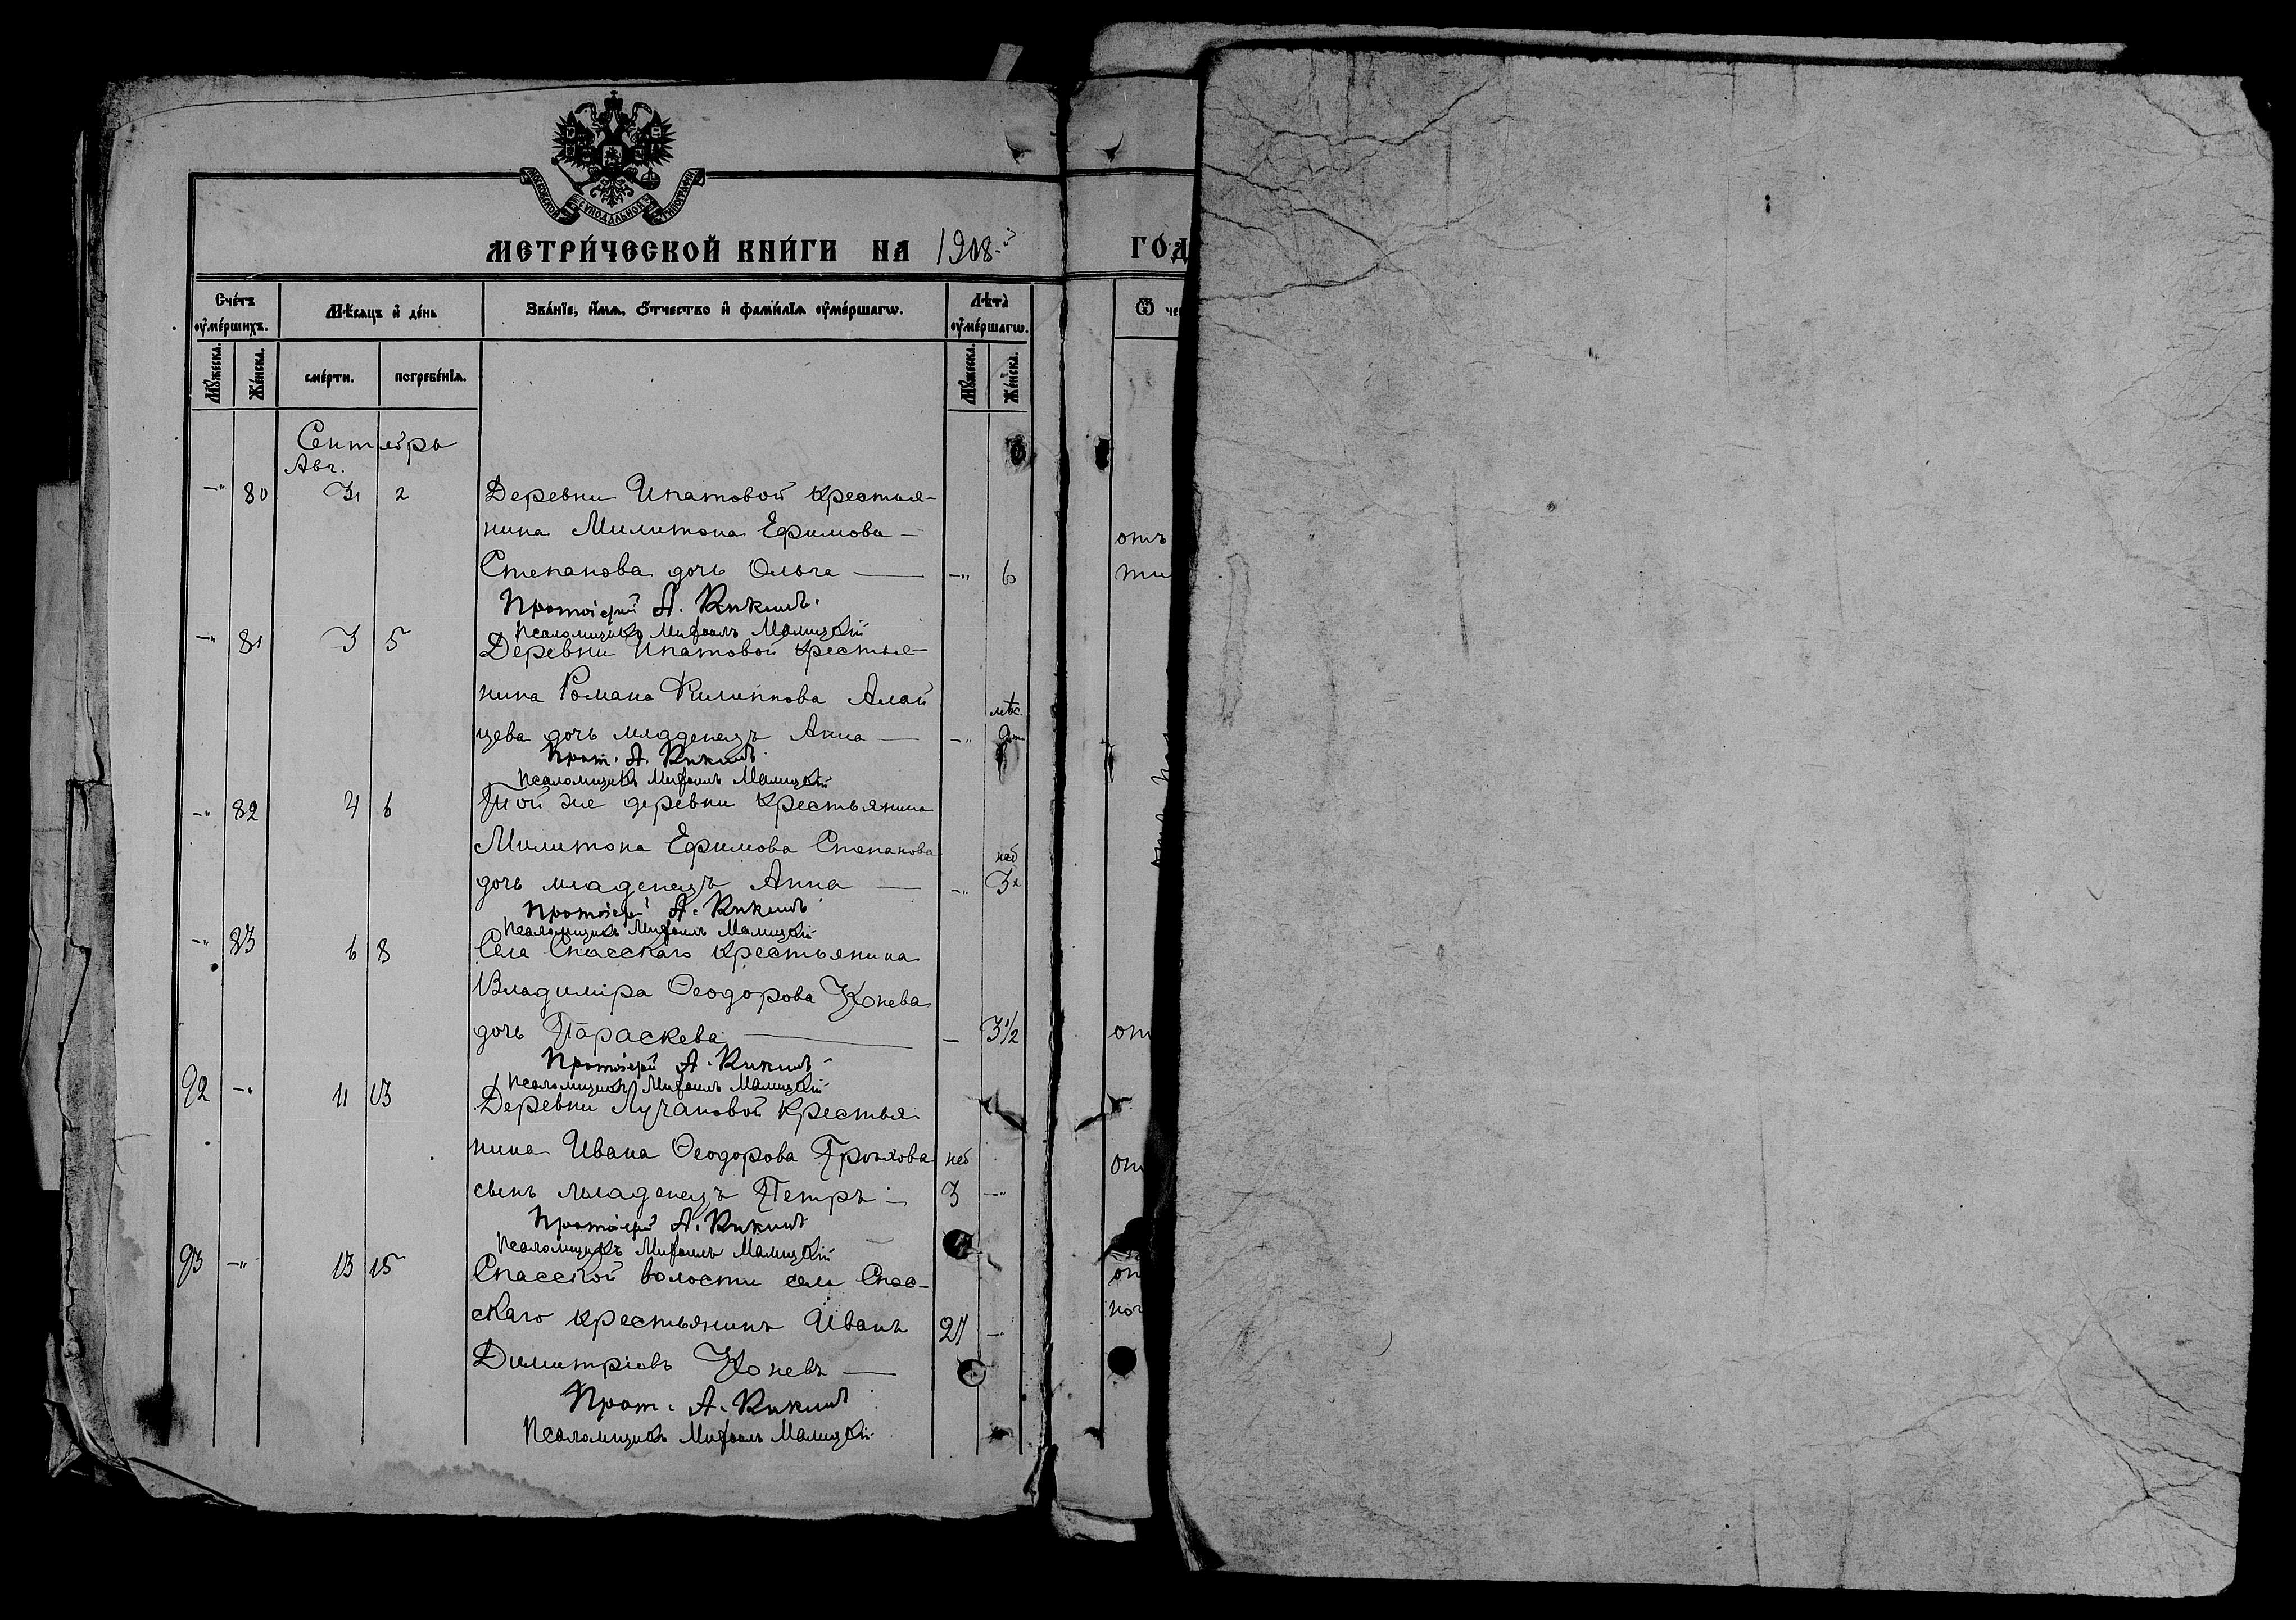 МОСКОВСКОЙ СѴНОДАЛЬНОЙ ТИПОГРАФІИ
МЕТРИ́ЧЕСКОЙ КНИ́ГИ НА 1908-й ГО́Д
Сче́тъ оу҆ме́ршихъ.
Мѣ́сяцъ и҆ де́нь
Зва́нїе, и҆́мѧ, ѻ҆́тчество и҆ фами́лїѧ оу҆ме́ршагѡ.
Лѣта̀ оу҆ме́ршагѡ.
Ѿ че
Мꙋ́жеска.
Же́нска.
сме́рти.
погребе́нїѧ.
Мꙋ́жеска.
Же́нска.
Сентябрь
Авг.
—" 80 31 2 Деревни Ипатовой крестья-
нина Милитона Ефимова — отъ
Степанова дочь Ольга — —" 6
Протоіерей А. Кикинъ
Псаломщикъ Михаилъ Малицкій
—" 81 3 5 Деревни Ипатовой крестья-
нина Романа Филиппова Алай
мѣс.
цева дочь младенецъ Анна — —"
Прот. А. Кикинъ
Псаломщикъ Михаилъ Малицкій
—" 82 4 6 Той же деревни крестьянина
Милитона Ефимова Степанова нед
дочь младенецъ Анна — —" 3
Протоіерей А. Кикинъ
Псаломщикъ Михаилъ Малицкій
—" 83 6 8 Села Спасскаго крестьянина
Владиміра Ѳеодорова Конева
дочь Параскева — — 3½ от
Протоіерей А. Кикинъ
Псаломщикъ Михаилъ Малицкій
92 —" 11 13 Деревни Лучановой крестья
нина Ивана Ѳеодорова нед от
сынъ младенецъ Петръ — 3 —"
Протоіерей А. Кикинъ
Псаломщикъ Михаилъ Малицкій
93 —" 13 15 Спасской волости села Спас-
скаго крестьянинъ Иванъ 27 —
Димитріевъ Коневъ —
Прот. А. Кикинъ
Псаломщикъ Михаилъ Малицкій